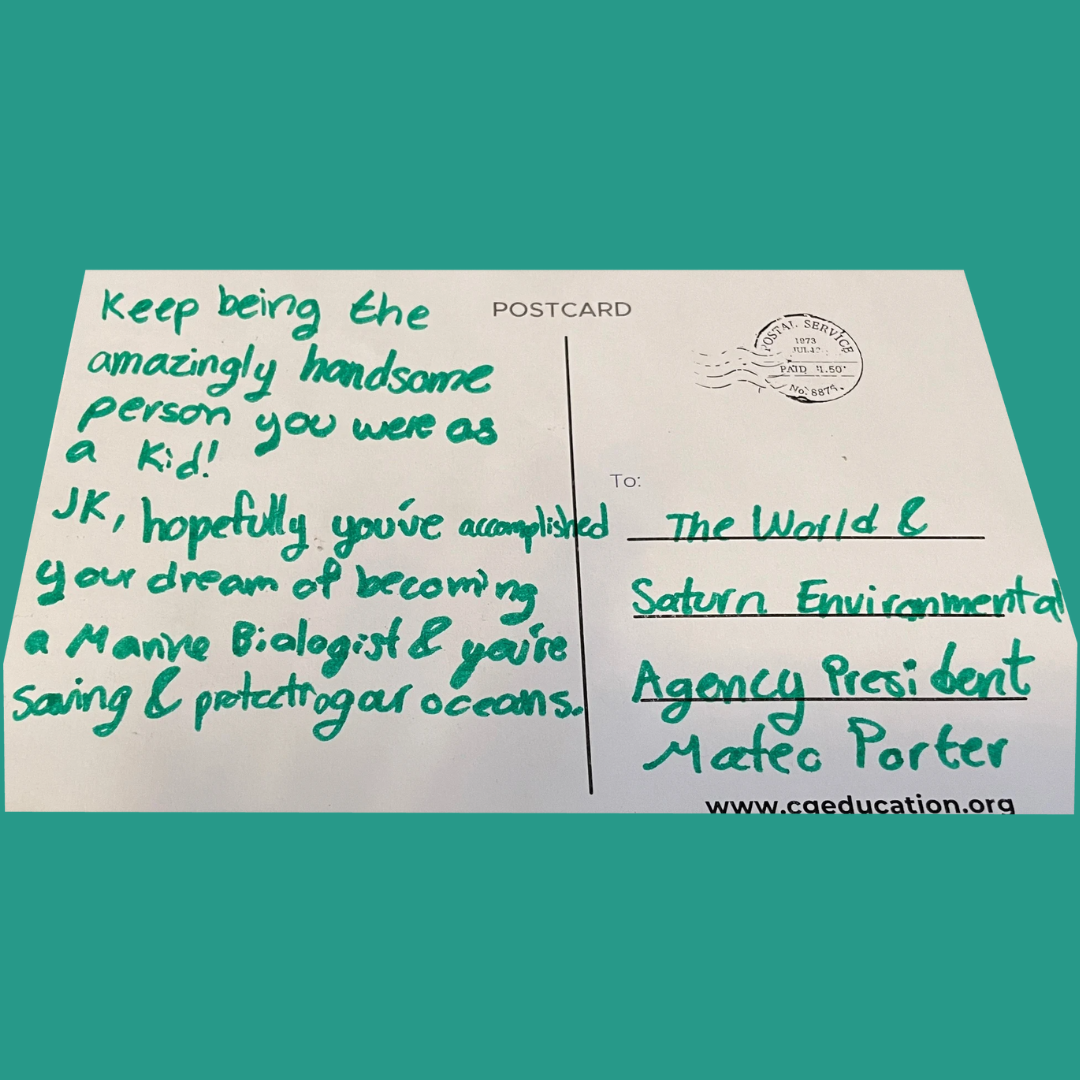 Keep being the
amazingly handsome
person you were as
a Kid!
JK, hopefully you've accomplished
your dream of becoming
a Marine Biologist & you're
saving & protecting our oceans.
POSTCARD
POSTAL SERVICE
1973
PAID $1.50
To:
The World &
Saturn Environmental
Agency President
Mateo Porter
www.cgeducation.org